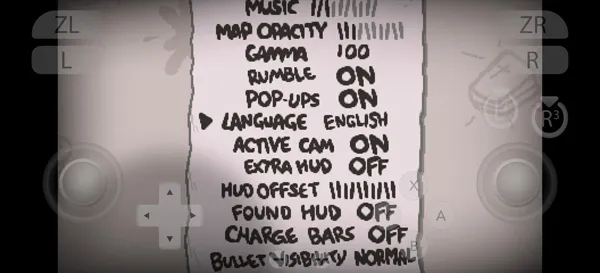 MUSIC
ZL
ZR
MAP OPACITY
GAMMA 100
L
R
RUMBLE ON
POP-UPS ON
L
R3
LANGUAGE ENGLISH
ACTIVE CAM ON
EXTRA HUD OFF
HUD OFFSET
X
FOUND HUD OFF
A
CHARGE BARS OFF
B
BULLET VISIBILITY NORMAL